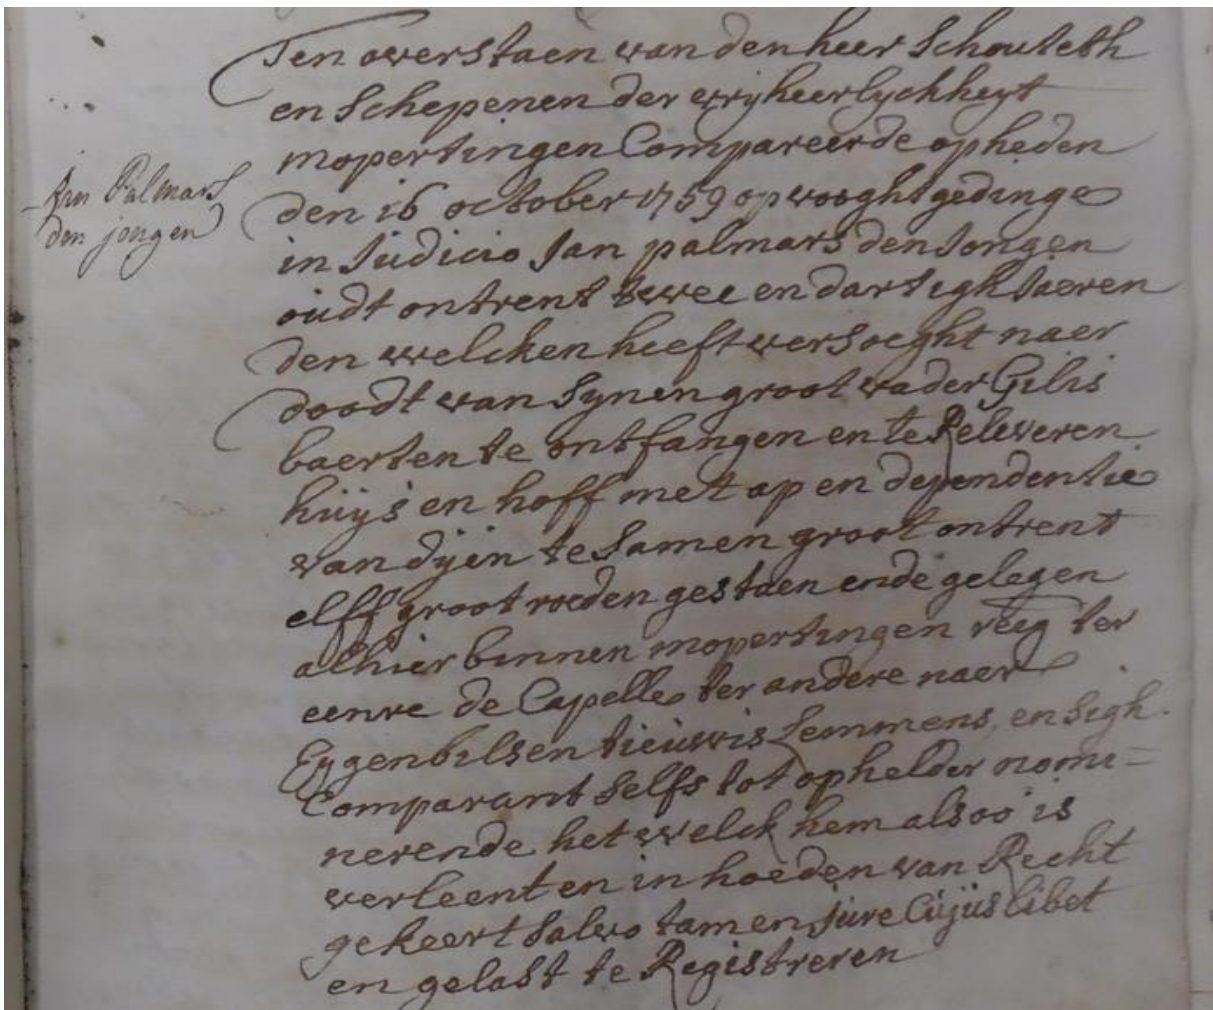 Jan Palmars
den jongen
Ten overstaen van den heer Schouteth
en Schepenen der vryheerlychheyt
mopertingen Compareerde op heden
den 16 october 1759 op vooght gedinge
in Judicio Jan palmars den Jongen
oudt ontrent twee en dartigh Jaeren
den welcken heeft versoeght naer
doodt van Synen groot vader Gilis
baerten te ontfangen en te Releveren
huys en hoff met ap en dependentie
van dyen te Samen groot ontrent
elff groot roeden gestaen ende gelegen
alhier binnen mopertingen reeg ter
eenre de Capelle ter andere naer
Eygenbilsen tieuwis Lemmens, en sigh
Comparant selfs tot ophelder nomi=
nerende het welck hem alsoo is
verleent en in hoeden van Recht
gekeert Salvo tamen jure Cujus libet
en gelast te Registreren